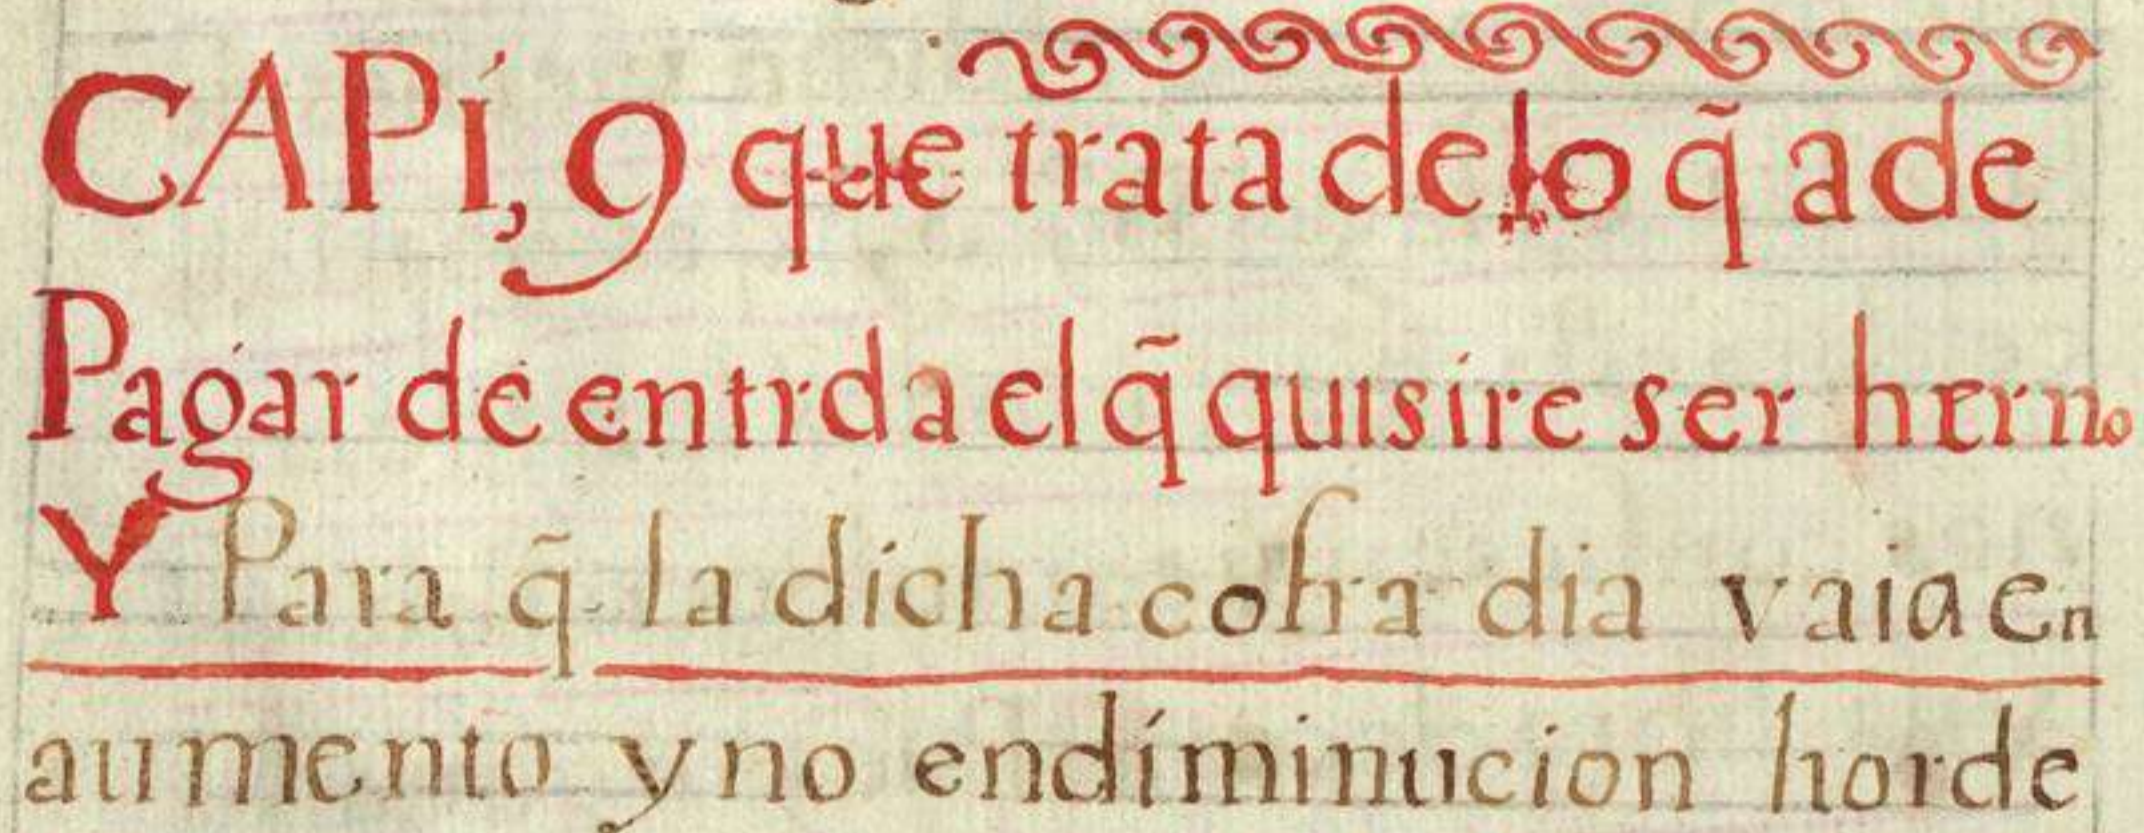 CAPí, 9 que trata delo q̃ a de
Pagar de entrda el q̃ quisire ser herno
Y Para q̃ la dicha cofradia vaia en
aumento y no en diminucion horde